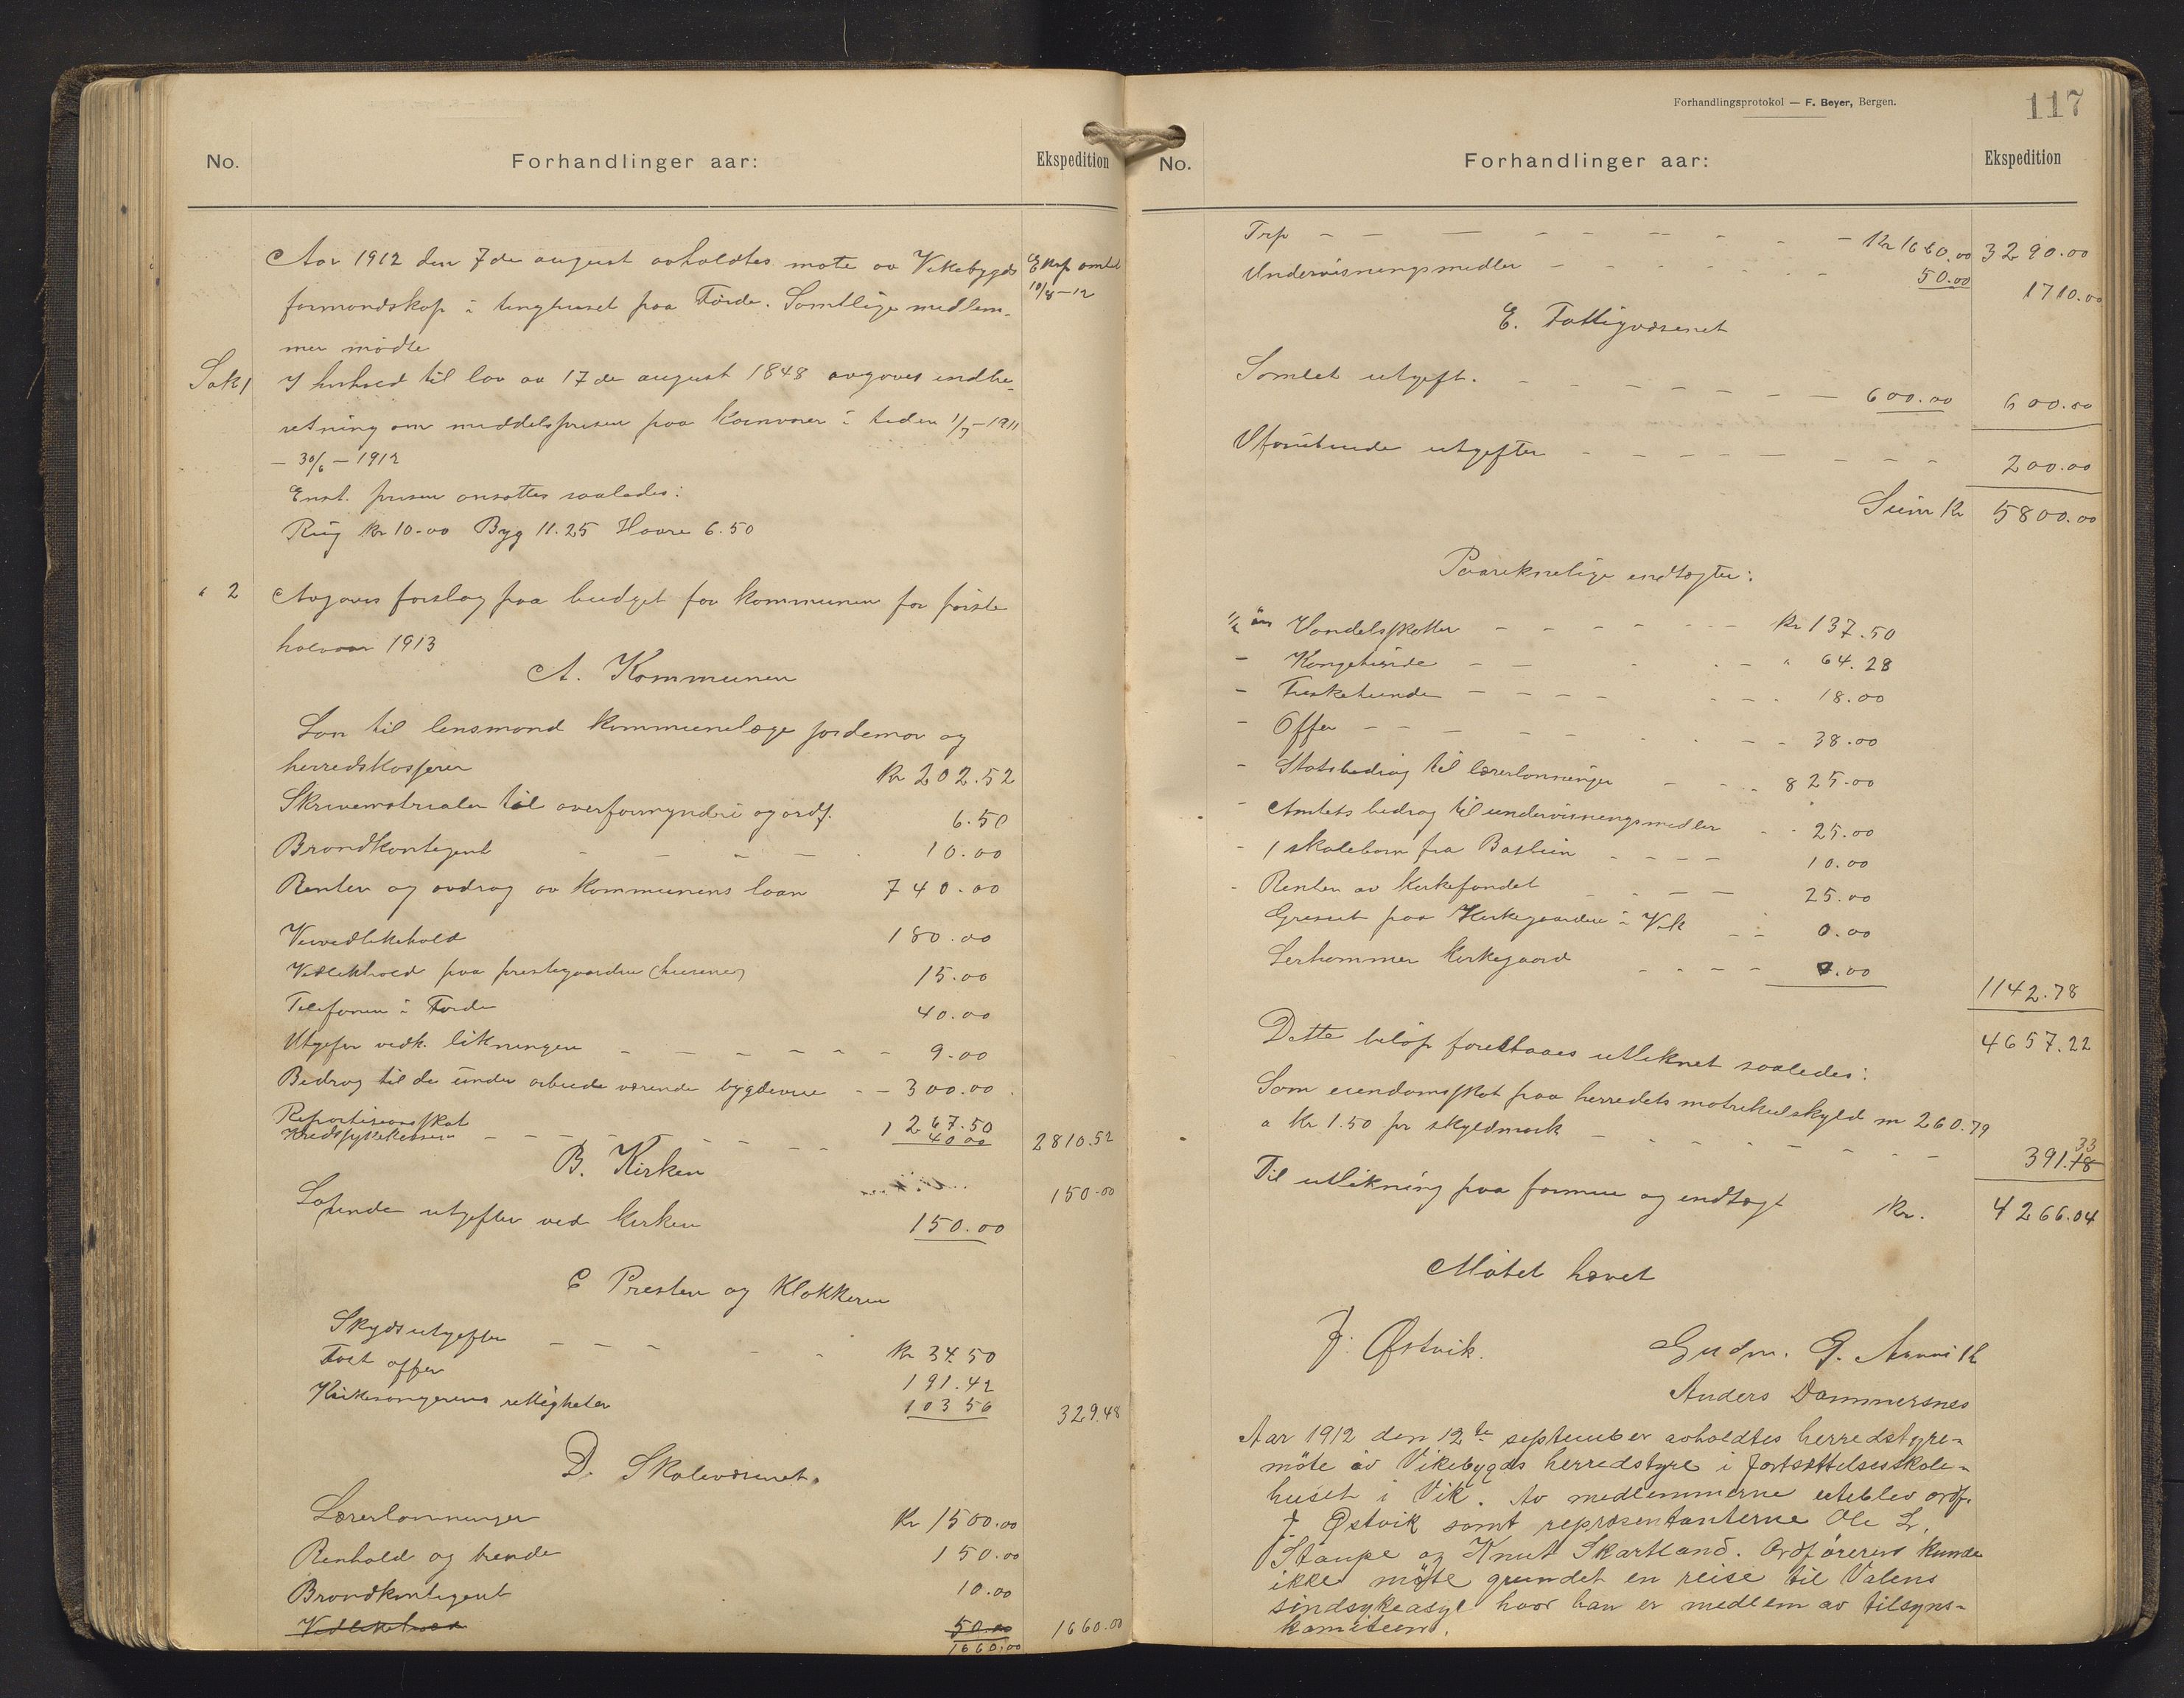 No.
Forhandlinger aar:
Ekspedition
Aar 1912 den 7de august avholdtes møte av Vikebygds
formandskap i tinghuset paa Førde. Samtlige medlem-
mer mødte
Eksp amtet
10/8-12
Sak 1
I henhold til lov av 17de august 1848 avgaves indbe-
retning om middelsprisen paa kornvarer i tiden 1/7-1911
- 30/6 - 1912
Enst. prisen ansattes saaledes:
Rug kr 10.00 Byg 11.25 Havre 6.50
" 2
Avgaves forslag paa budget for kommunen for første
halvaar 1913
A. Kommunen
Løn til lensmand kommunelæge jordemor og
herredskasserer kr 202.52
Skrivematrialer til overformynderi og ordf. 6.50
Brandkontigent - - - - 10.00
Renter og avdrag av kommunens laan 740.00
Veivedlikehold 180.00
Vedlikehold paa prestegaarden (husene) 15.00
Telefonen i Førde 40.00
Utgifter vedk. likningen - - - - - - 9.00
Bidrag til de under arbeide værende bygdeveie - - 300.00
Repartisionsskat 1 267.50
Kredssykekassen - - - - - - - 40.00 2810.52
B. Kirken
150.00
Løpende utgifter ved kirken 150.00
C Presten og Klokkeren
Skydsutgifter - - - - - kr 34.50
Tvet offer 191.42
Kirkesangerens rettigheter 103 56 329.48
D. Skolevæsenet.
Lærerlønninger kr 1500.00
Renhold og brende 150.00
Brandkontigent 10.00
Vedlikehold 50.00
1660.00 1660.00
Forhandlingsprotokol — F. Beyer, Bergen.
117
No.
Forhandlinger aar:
Ekspedition
Trp - - - - - - - - - Kr 1660.00 3290.00
Undervisningsmidler - - - - - - - 50.00 1710.00
E. Fattigvæsenet
Samlet utgift. - - - - - - - 600.00 600.00
Uforutseede utgifter - - - - - - - - 200.00
Sum Kr 5800.00
Paareknelige indtægter:
1/2 års Vandelsskatter - - - - - - - kr 137.50
- Kongetiende - - - - - " 64.28
- Fisketiende - - - - - - - 18.00
- Offer - - - - - - - - - 38.00
- Statsbidrag til lærerlønninger - - - 825.00
- Amtets bidrag til undervisningsmidler - - 25.00
- 1 skolebarn fra Bastlein - - - - 10.00
- Renter av kirkefondet - - - - 25.00
Gresset paa Kirkegaarden i Vik - - 0.00
Leirhammer kirkegaard - - - - 0.00
1142.78
4657.22
Dette beløp foreslaaes utliknet saaledes:
Som eiendomsskat paa herredets matrikulskyld m 260.79
a Kr 1.50 pr skyldmark - - - - - - - - 391.18 33
Til utlikning paa formue og indtægt kr. 4266.04
Møtet hævet
J. Østvik. Gudm. G.
Anders Dommersnes
Aar 1912 den 12te september avholdtes herredstyre-
møte av Vikebygds herredstyre i fortsættelsesskole-
huset i Vik. Av medlemmerne uteblev ordf.
J. Østvik samt repræsentanterne Ole L.
Staupe og Knut Skartland. Ordføreren kunde
ikke møte grundet en reise til Valens
sindsykeasyl hvor han er medlem av tilsyns-
komiteen.